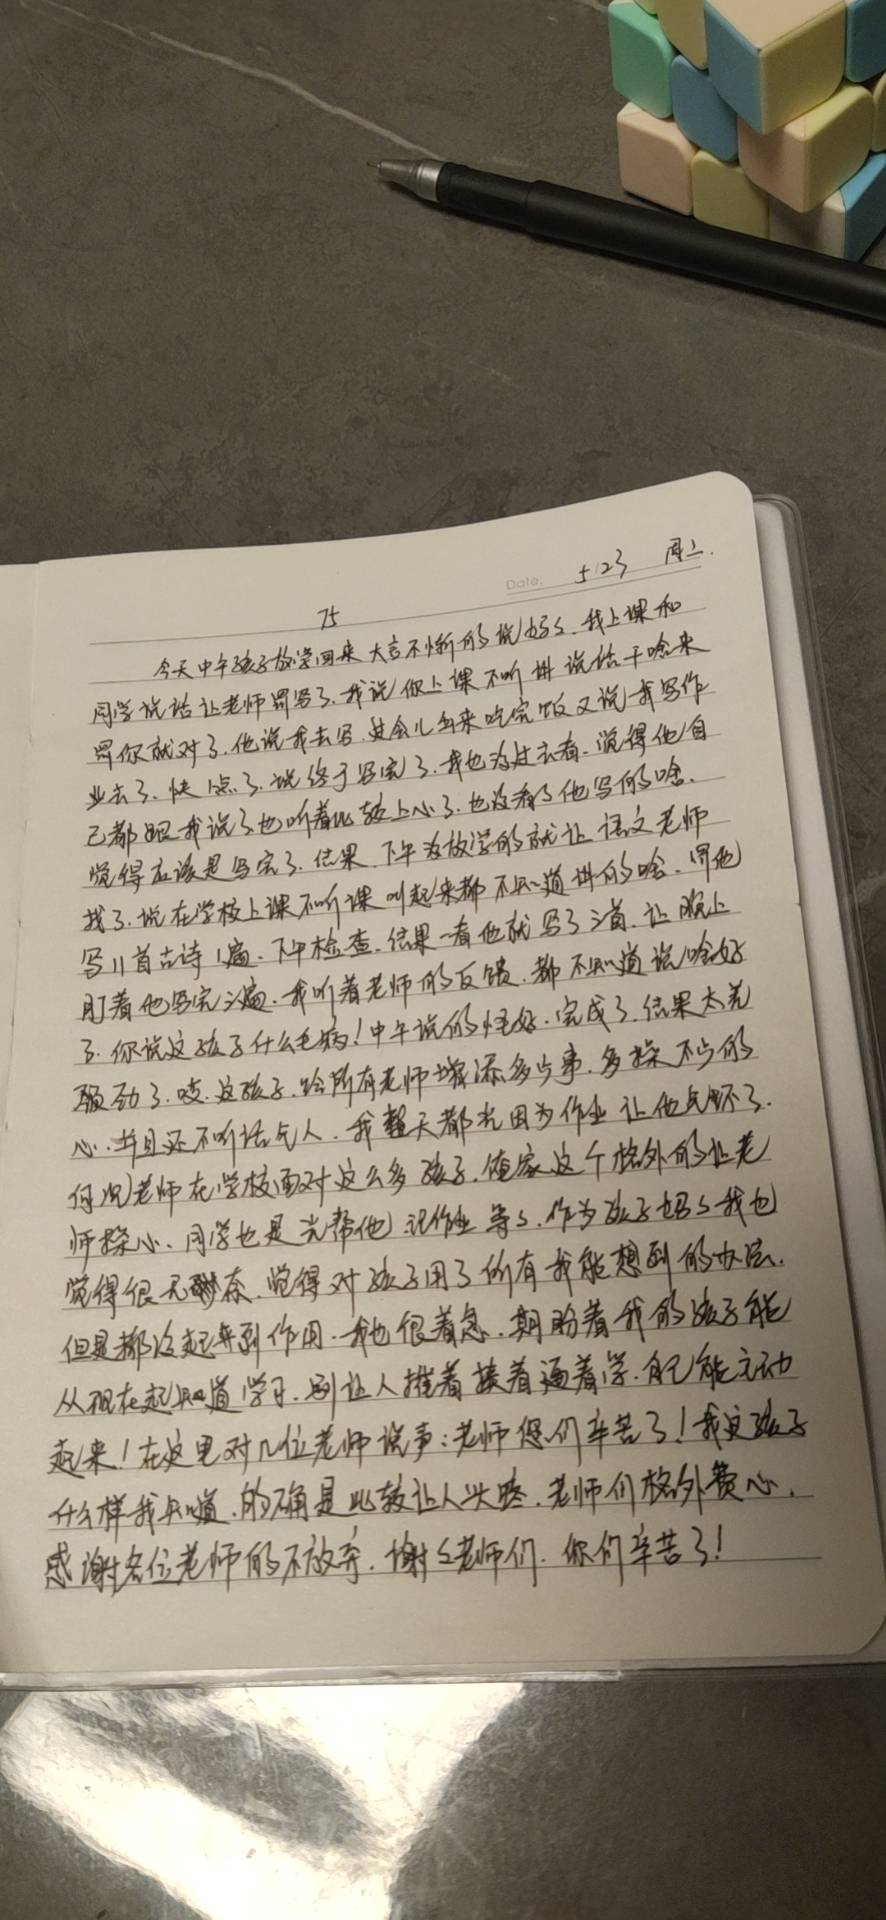 Date. 5/23 周二.
75
今天中午孩子放学回来大言不惭的说妈妈、我上课和
同学说话让老师罚写了、我说你上课不听讲说话干啥来
罚你就对了、他说我去写、过会儿出来吃完饭又说我写作
业去了、快点了、说终于写完了、我也没过去看、觉得他自
己都跟我说了也听着比较上心了、也没看了他写的啥、
觉得应该是写完了、结果下午没放学的就让语文老师
找了、说在学校上课不听课叫起来都不知道讲的啥、罚他
写11首古诗1遍、下午检查、结果一看他就写了3首、让晚上
盯着他写完3遍、我听着老师的反馈、都不知道说啥好
了、你说这孩子什么毛病!中午说的怪好、完成了、结果太差
劲了、哎、这孩子、给所有老师增添多少事、多操不少的
心、并且还不听话气人、我整天都光因为作业让他气坏了、
何况老师在学校面对这么多孩子、俺家这个格外的让老
师操心、同学也是光帮他记作业等等、作为孩子妈妈我也
觉得很无奈、觉得对孩子用了所有我能想到的办法、
但是都没起到作用、我也很着急、期盼着我的孩子能
从现在起知道学习、别让人推着逼着学、自己能主动
起来!在这里对几位老师说声:老师您们辛苦了!我这孩子
什么样我知道、的确是比较让人头疼、老师们格外费心、
感谢各位老师的不放弃、谢谢老师们、你们辛苦了!